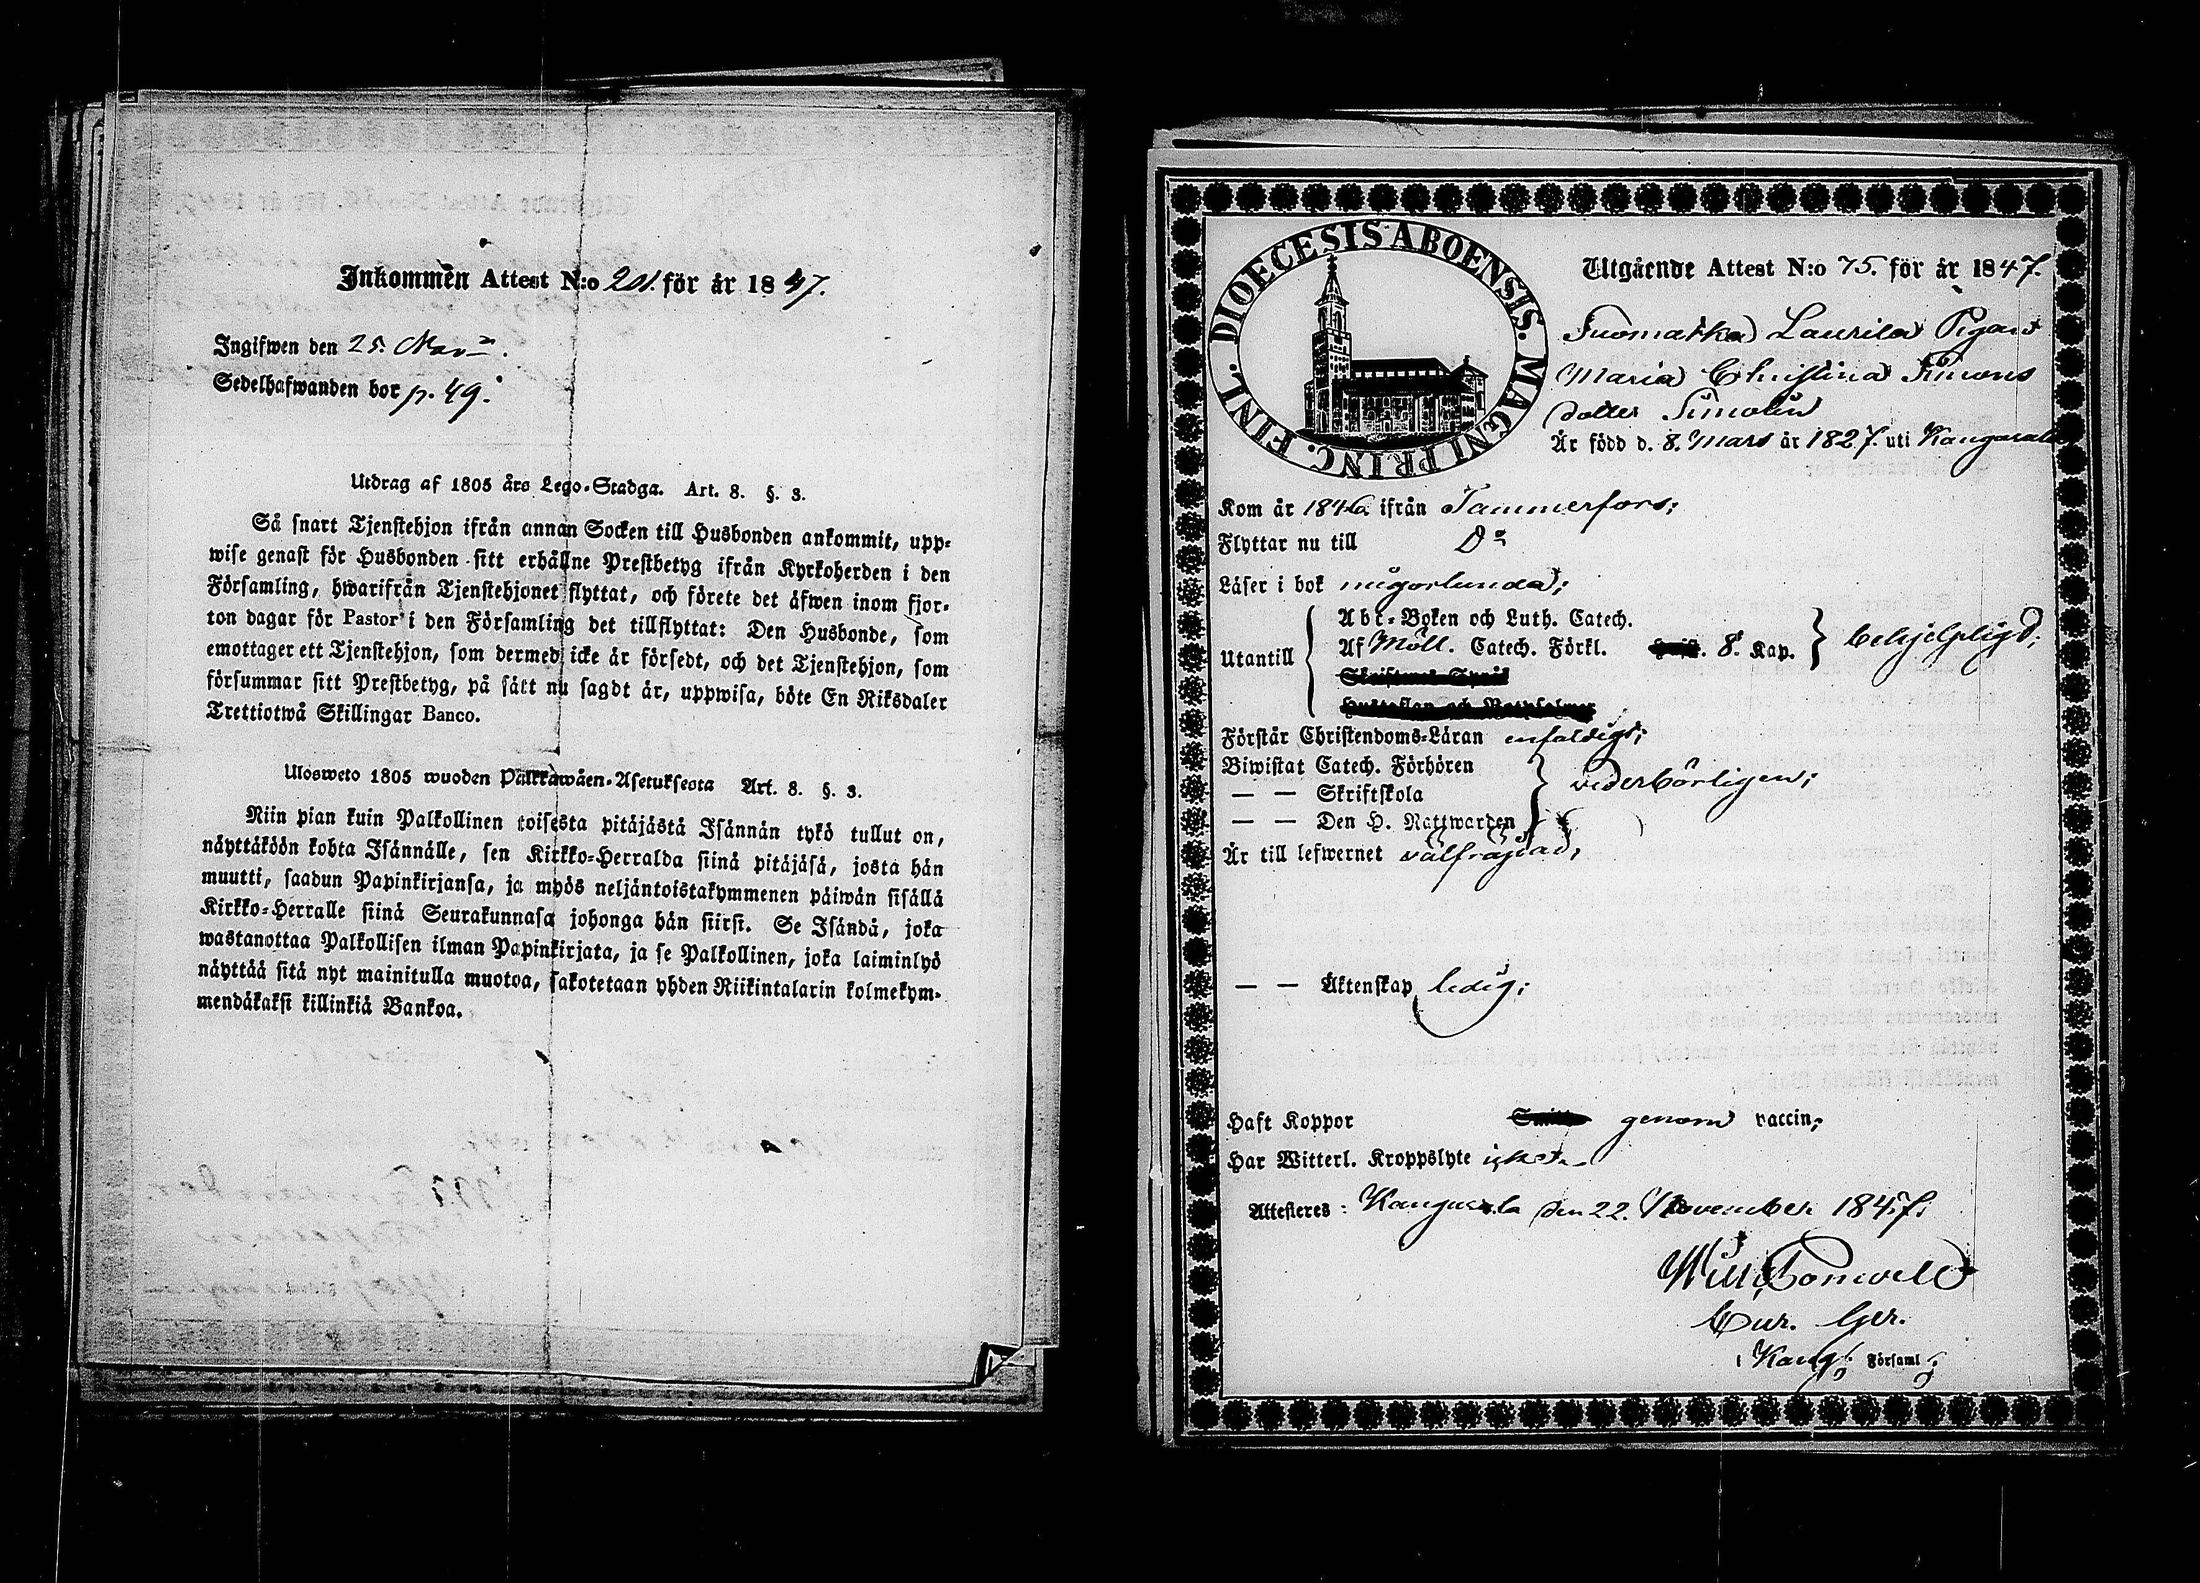 Inkommen Attest N:o 201. för år 1847.
Ingifwen den 25. Nov.
Sedelhafwanden bor p. 49.
Utdrag af 1805 års Lego-Stadga. Art. 8. §. 3.
Så snart Tjenstehjon ifrån annan Socken till Husbonden ankommit, upp-
wise genast för Husbonden sitt erhållne Prestbetyg ifrån Kyrkoherden i den
Församling, hwarifrån Tjenstehjonet flyttat, och förete det äfwen inom fjor-
ton dagar för Pastor i den Församling det tillflyttat: Den Husbonde, som
emottager ett Tjenstehjon, som dermed icke är försedt, och det Tjenstehjon, som
försummar sitt Prestbetyg, på sätt nu sagdt är, uppwisa, böte En Riksdaler
Trettiotwå Skillingar Banco.
Ulosweto 1805 wuoden Palkkawäen-Asetuksesta Art. 8. §. 3.
Niin pian kuin Palkollinen toisesta pitäjästä Isännän tykö tullut on,
näyttäköön kohta Isännälle, sen Kirkko-Herralda siinä pitäjäsä, josta hän
muutti, saadun Papinkirjansa, ja myös neljäntoistakymmenen päiwän sisällä
Kirkko-Herralle siinä Seurakunnasa johonga hän siirsi. Se Isändä, joka
wastanottaa Palkollisen ilman Papinkirjata, ja se Palkollinen, joka laiminlyö
näyttää sitä nyt mainitulla muotoa, sakotetaan yhden Riikintalarin kolmekym-
mendäkaksi killinkiä Bankoa.
DIOECESIS ABOENSIS. MAGNI PRINC. FINL.
Utgående Attest N:o 75. för år 1847.
Suomatka Laurila Pigan
Maria Christina Simons
dotter Simolin
Är född d. 8. Mars år 1827. uti Kangasala
Kom år 1846. ifrån Tammerfors;
Flyttar nu till Do
Läser i bok någorlunda;
Abc-Boken och Luth. Catech.
Utantill Af Möll. Catech. Förkl. 8. Kap. behjelpligt;
Förstår Christendoms-Läran enfaldigt;
Biwistat Catech. Förhören
— — Skriftskola vederbörligen;
— — Den H. Nattwarden
Är till lefwernet välfräjdad;
— — Äktenskap ledig;
Haft Koppor genom vaccin;
Har Witterl. Kroppslyte icke.
Attesteres: Kangasala den 22. November 1847.
i Kang. Församl.